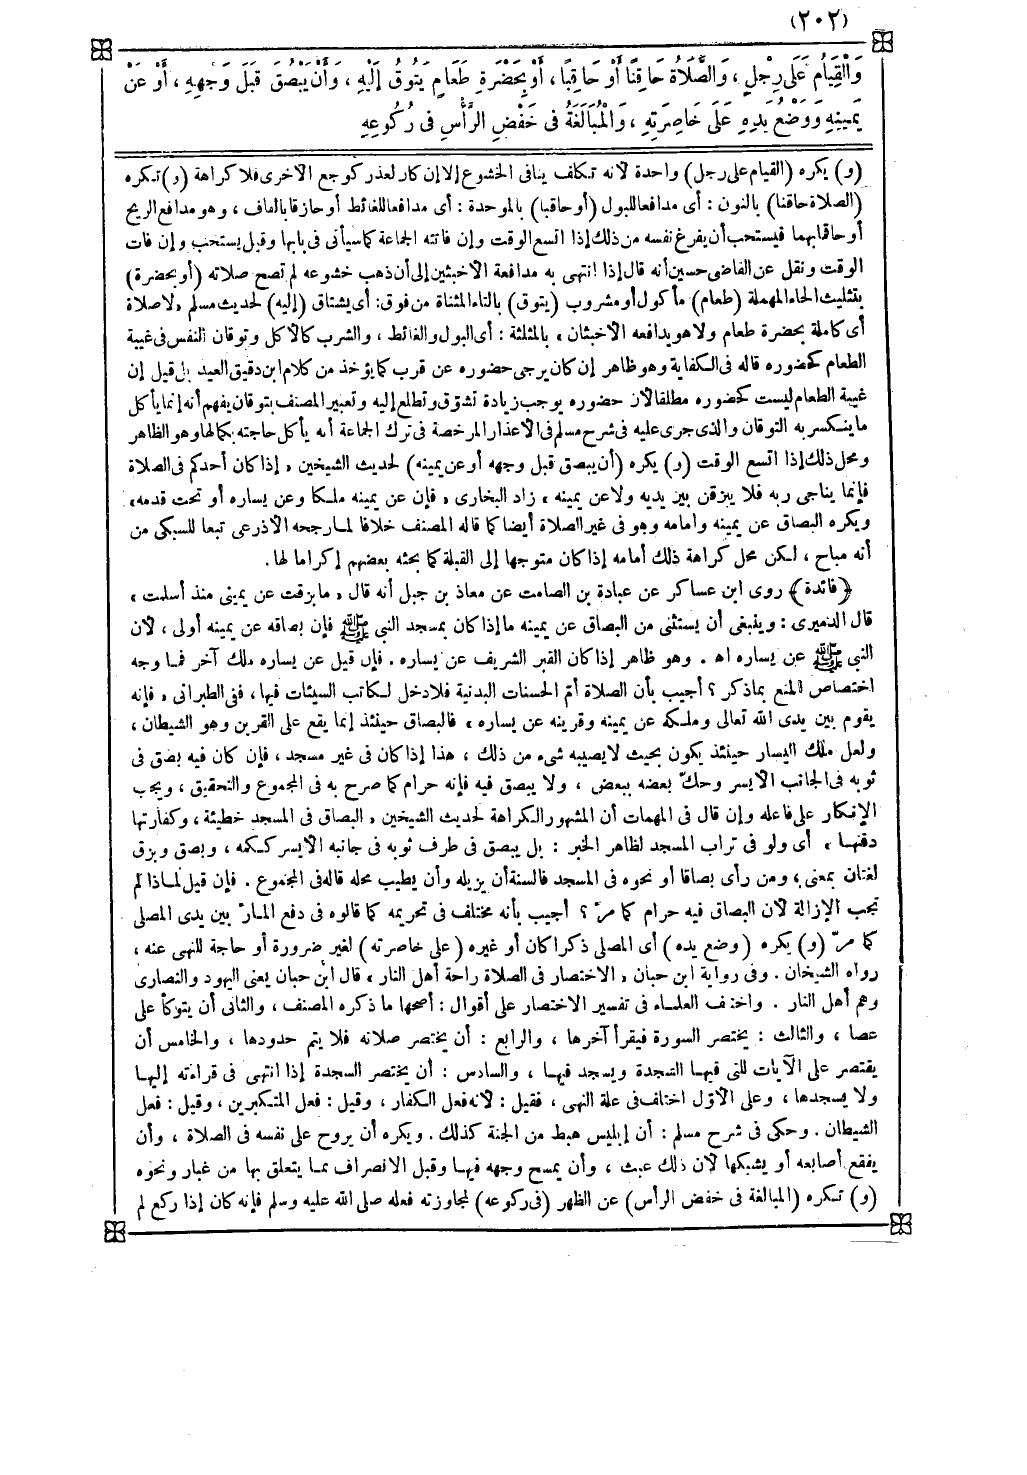 (٢٠٢)
وَالْقِيَامُ عَلَى رِجْلٍ ، وَالصَّلَاةُ حَاقِنًا أَوْ حَاقِبًا ، أَوْ بِحَضْرَةِ طَعَامٍ يَتُوقُ إِلَيْهِ ، وَأَنْ يَبْصُقَ قِبَلَ وَجْهِهِ ، أَوْ عَنْ
يَمِينِهِ وَوَضْعُ يَدِهِ عَلَى خَاصِرَتِهِ ، وَالْمُبَالَغَةُ فِى خَفْضِ الرَّأْسِ فِى رُكُوعِهِ
(و) يكره (القيام على رجل) واحدة لأنه تكلف ينافى الخشوع إلا إن كان لعذر كوجع الأخرى فلا كراهة (و) تكره
(الصلاة حاقنا) بالنون : أى مدافعا للبول (أو حاقبا) بالموحدة : أى مدافعا للغائط أو حازقا بالقاف ، وهو مدافع الريح
أو حاقما بهما فيستحب أن يفرغ نفسه من ذلك إذا اتسع الوقت وإن فاتته الجماعة كما سيأتى فى بابها وقيل يستحب وإن فات
الوقت ونقل عن القاضى حسين أنه قال إذا انتهى به مدافعة الأخبثين إلى أن ذهب خشوعه لم تصح صلاته (أو بحضرة)
بتثليث الحاء المهملة (طعام) مأكول أو مشروب (يتوق) بالتاء المثناة من فوق : أى يشتاق (إليه) لحديث مسلم «لا صلاة
أى كاملة بحضرة طعام ولا هو يدافعه الأخبثان» بالمثلثة : أى البول والغائط ، والشرب كالأكل وتوقان النفس فى غيبة
الطعام كحضوره قاله فى الكفاية وهو ظاهر إن كان يرجى حضوره عن قرب كما يؤخذ من كلام ابن دقيق العيد بل قيل إن
غيبة الطعام ليست كحضوره مطلقا لأن حضوره يوجب زيادة تشوّق وتطلع إليه وتعبير المصنف بتوقان يفهم أنه إنما يأكل
ما ينكسر به التوقان والذى جرى عليه فى شرح مسلم فى الأعذار المرخصة فى ترك الجماعة أنه يأكل حاجته بكمالها وهو الظاهر
ومحل ذلك إذا اتسع الوقت (و) يكره (أن يبصق قبل وجهه أو عن يمينه) لحديث الشيخين «إذا كان أحدكم فى الصلاة
فإنما يناجى ربه فلا يبزقن بين يديه ولا عن يمينه» زاد البخارى «فإن عن يمينه ملكا وعن يساره أو تحت قدمه»
ويكره البصاق عن يمينه وأمامه وهو فى غير الصلاة أيضا كما قاله المصنف خلافا لما رجحه الأذرعى تبعا للسبكى من
أنه مباح ، لكن محل كراهة ذلك أمامه إذا كان متوجها إلى القبلة كما بحثه بعضهم إكراما لها .
﴿فائدة﴾ روى ابن عساكر عن عبادة بن الصامت عن معاذ بن جبل أنه قال «ما بزقت عن يمينى منذ أسلمت»
قال الدميرى : وينبغى أن يستثنى من البصاق عن يمينه ما إذا كان بمسجد النبي ﷺ فإن بصاقه عن يمينه أولى ، لأن
النبي ﷺ عن يساره اهـ . وهو ظاهر إذا كان القبر الشريف عن يساره . فإن قيل عن يساره ملك آخر فما وجه
اختصاص المنع بما ذكر ؟ أجيب بأن الصلاة أمّ الحسنات البدنية فلا دخل لكاتب السيئات فيها ، ففى الطبرانى «فإنه
يقوم بين يدى الله تعالى وملكه عن يمينه وقرينه عن يساره» فالبصاق حينئذ إنما يقع على القرين وهو الشيطان ،
ولعل ملك اليسار حينئذ يكون بحيث لا يصيبه شىء من ذلك ، هذا إذا كان فى غير مسجد ، فإن كان فيه بصق فى
ثوبه فى الجانب الأيسر وحكّ بعضه ببعض ، ولا يبصق فيه فإنه حرام كما صرح به فى المجموع والتحقيق ، ويجب
الإنكار على فاعله وإن قال فى المهمات أن المشهور الكراهة لحديث الشيخين «البصاق فى المسجد خطيئة ، وكفارتها
دفنها» أى ولو فى تراب المسجد لظاهر الخبر : بل يبصق فى طرف ثوبه فى جانبه الأيسر ككمه ، وبصق وبزق
لغتان بمعنى ، ومن رأى بصاقا أو نحوه فى المسجد فالسنة أن يزيله وأن يطيب محله قاله فى المجموع . فإن قيل لماذا لم
تجب الإزالة لأن البصاق فيه حرام كما مرّ ؟ أجيب بأنه مختلف فى تحريمه كما قالوه فى دفع المارّ بين يدى المصلى
كما مرّ (و) يكره (وضع يده) أى المصلى ذكرا كان أو غيره (على خاصرته) لغير ضرورة أو حاجة للنهى عنه ،
رواه الشيخان . وفى رواية ابن حبان «الاختصار فى الصلاة راحة أهل النار» قال ابن حبان يعنى اليهود والنصارى
وهم أهل النار . واختلف العلماء فى تفسير الاختصار على أقوال : أصحها ما ذكره المصنف ، والثانى أن يتوكأ على
عصا ، والثالث : يختصر السورة فيقرأ آخرها ، والرابع : أن يختصر صلاته فلا يتم حدودها ، والخامس أن
يقتصر على الآيات التى فيها السجدة ويسجد فيها ، والسادس : أن يختصر السجدة إذا انتهى فى قراءته إليها
ولا يسجدها ، وعلى الأوّل اختلف فى علة النهى ، فقيل : لأنه فعل الكفار ، وقيل : فعل المتكبرين ، وقيل : فعل
الشيطان . وحكى فى شرح مسلم : أن إبليس هبط من الجنة كذلك . ويكره أن يروح على نفسه فى الصلاة ، وأن
يفقع أصابعه أو يشبكها لأن ذلك عبث ، وأن يمسح وجهه فيها وقبل الانصراف مما يتعلق بها من غبار ونحوه
(و) تكره (المبالغة فى خفض الرأس) عن الظهر (فى ركوعه) لمجاوزته فعله صلى الله عليه وسلم فإنه كان إذا ركع لم